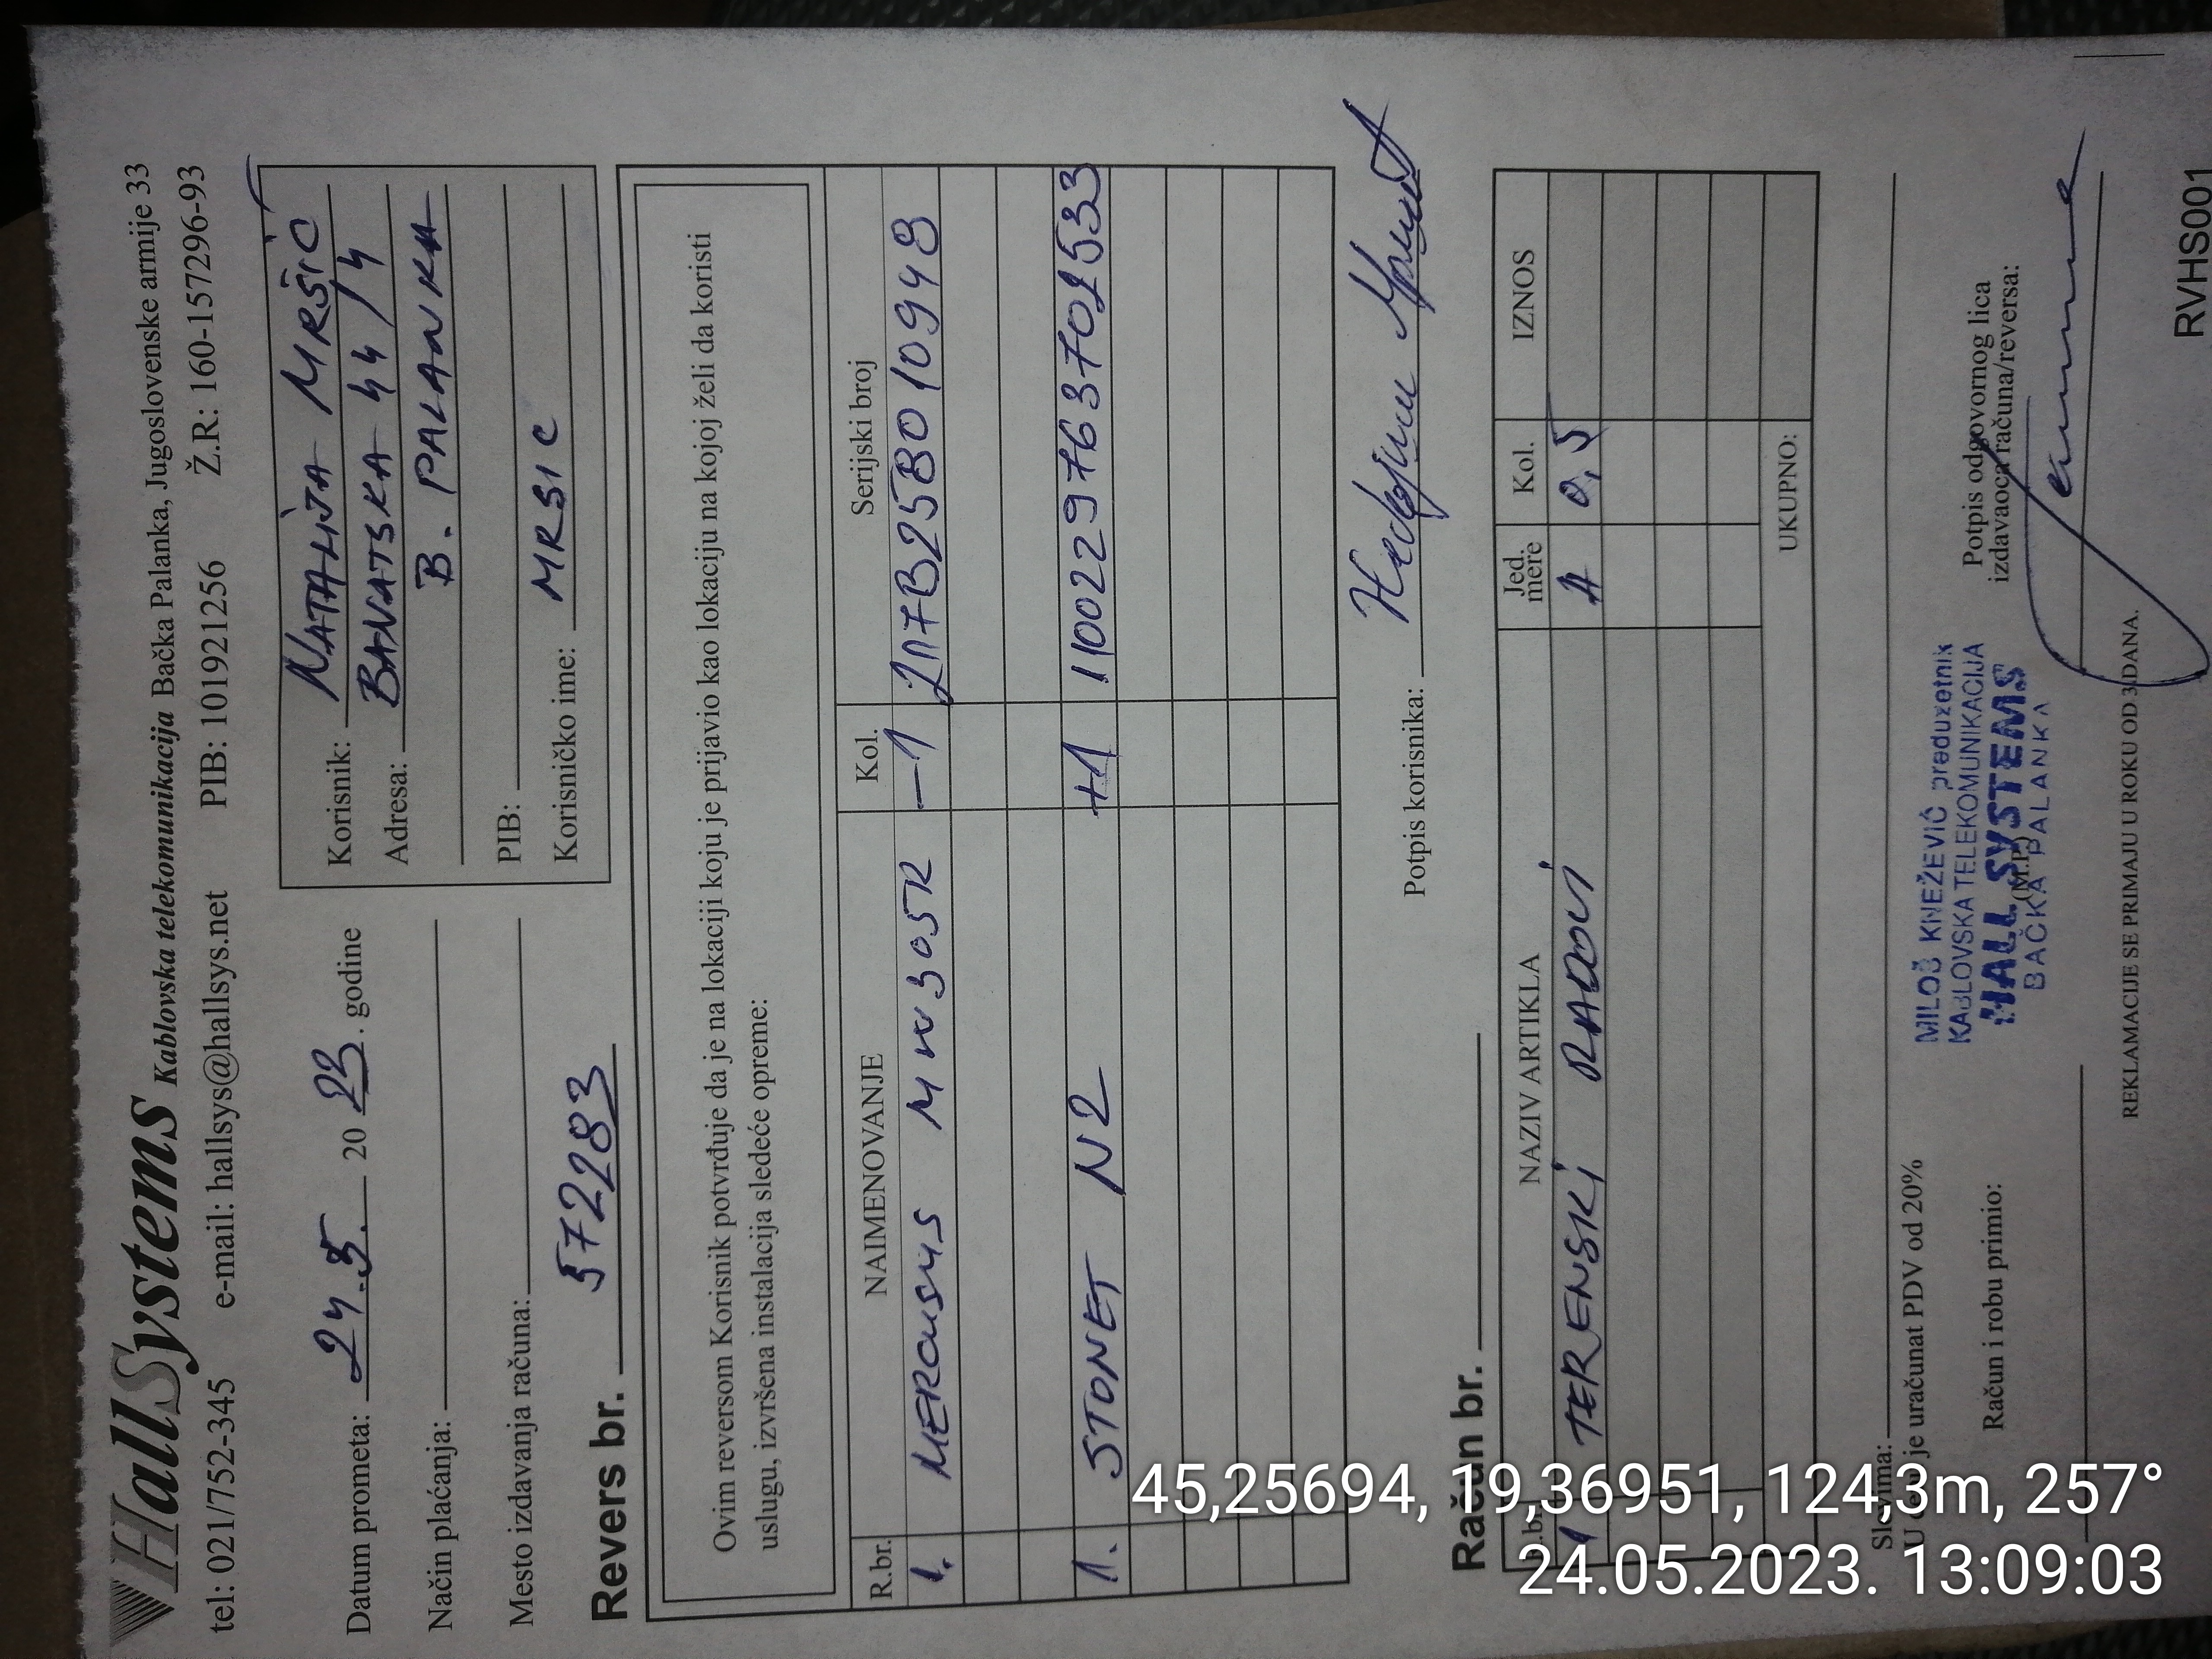 HallSystems Kablovska telekomunikacija Bačka Palanka, Jugoslovenske armije 33
tel: 021/752-345 e-mail: hallsys@hallsys.net PIB: 101921256 Ž.R: 160-157296-93
Datum prometa: 24.5. 20 23. godine
Način plaćanja:
Mesto izdavanja računa:
Korisnik: NATALIJA MRŠIĆ
Adresa: BANATSKA 44/4
B. PALANKA
PIB:
Korisničko ime: MRSIC
Revers br. 57283
Ovim reversom Korisnik potvrđuje da je na lokaciji koju je prijavio kao lokaciju na kojoj želi da koristi
uslugu, izvršena instalacija sledeće opreme:
R.br. NAIMENOVANJE Kol. Serijski broj
1. MERCUSYS MW305R -1 217B25B010948
1. STONET N2 +1 1100229763702533
Potpis korisnika:
Račun br.
R.br. NAZIV ARTIKLA Jed. mere Kol. IZNOS
1 TERENSKI RADOVI H 0,5
UKUPNO:
Slovima:
U cenu je uračunat PDV od 20%
Račun i robu primio:
MILOŠ KNEŽEVIĆ preduzetnik
KABLOVSKA TELEKOMUNIKACIJA
"HALL SYSTEMS"
(M.P.)
BAČKA PALANKA
Potpis odgovornog lica
izdavaoca računa/reversa:
REKLAMACIJE SE PRIMAJU U ROKU OD 3 DANA.
RVHS001
45,25694, 19,36951, 124,3m, 257°
24.05.2023. 13:09:03